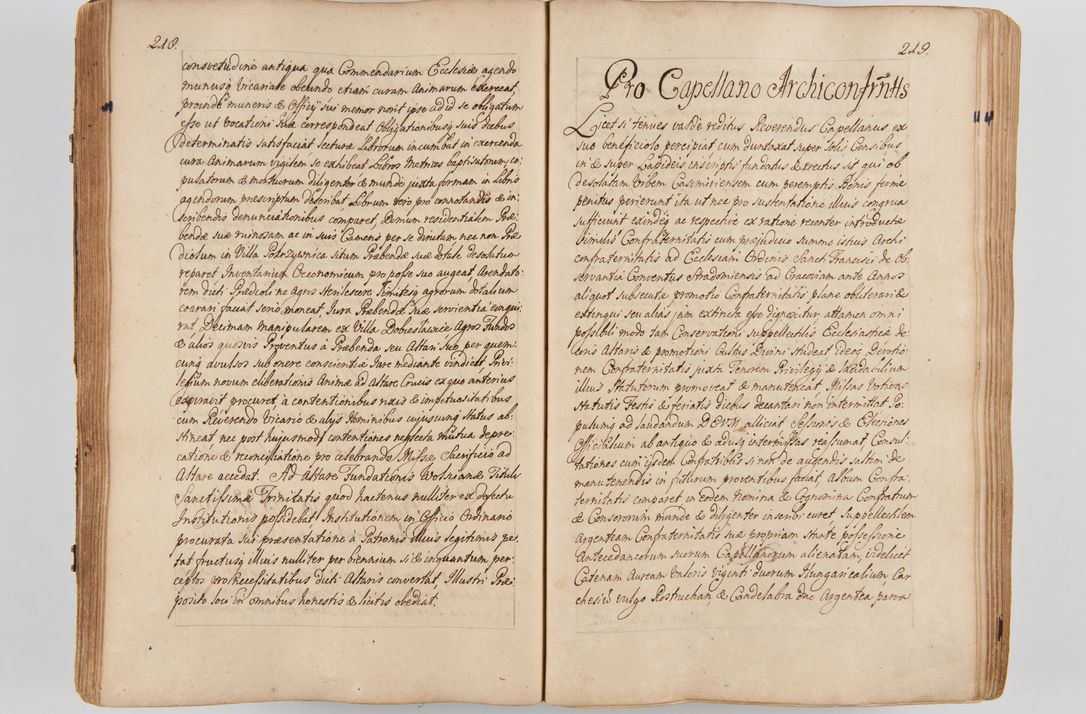 218.
consvetudine antiqua qua Commendarium Ecclesiæ agendo
munusq Vicariale obeundo etiam curam Animarum exerceat,
proinde muneris & Officij sui memor norit ipse ad id se obligatum
esse ut vocationi suæ correspondeat Obligationibusq suis diebus
Determinatis satisfaciat Lecturæ Librorum incumbat in exercenda
cura Animarum vigilem se exhibeat Libros Metrices baptisatorum, co-
pulatorum & mortuorum diligenter & munde juxta formam in Libris
agendorum præscriptam describat Librum vero pro connotandis & in-
scribendis denunciationibus comparet, Demum residentialem Præ-
bendæ suæ ruinosam ac in suis Cameris per se dirutam nec non Præ-
diolum in Villa situm Præbendæ suæ dotale desolatum
reparet Inventarium Oeconomicum pro posse suo augeat Arendato-
rem dicti Prædioli ne Agros sterilescere Limitesq agrorum dotalium
coarari faciat serio moneat, Jura Præbendæ suæ servientia conqui-
rat, Decimam manipularem ex Villa Agros Fundos
& alios quosvis Proventus a Præbenda seu Altari suo per quem-
cunq avulsos sub onere conscientiæ Jure mediante vindicet Privi-
legium novum liberationis Animæ ad Altare Crucis ex quo anterius
expiravit procuret a contentionibus rixis & impetuositatibus
cum Reverendo Vicario & alijs Hominibus cujuscunq status ab-
stineat nec post hujusmodi contentiones neglecta mutua depre-
catione & reconciliatione pro celebrando Missæ Sacrificio ad
Altare accedat. Ad Altare Fundationis Wolskianæ Tituli
Sanctissimæ Trinitatis quod hactenus nulliter ex defectu
Institutionis possidebat Institutionem in Officio Ordinario
procurata sui præsentatione a Patronis illius legitimis pe-
tat fructusq illius nulliter per biennium si & inquantum per-
ceptos pro Necessitatibus dicti Altaris convertat Illustri Præ-
posito loci in omnibus honestis & licitis obediat.
219.
Pro Capellano Archiconfrnttis
Licet si tenues valde reditus Reverendus Capellanus ex
suo beneficiolo percipiat cum duntaxat super solis Censibus
in & super Lapideis inscriptis fundatus & erectus sit qui ob
desolatam Urbem Casimiriensem cum peremptis Bonis ferme
penitus perierunt ita ut nec pro sustentatione illius congrua
sufficiunt exindeq ac respective ex ratione recenter introductæ
similis Confraternitatis cum præjudicio summo istius Archi
confraternitatis ad Ecclesiam Ordinis Sancti Francisci de Ob-
servantia Conventus Stradomiensis ad Cracoviam ante Annos
aliquot subsecutæ promotio Confraternitatis plane obliterari &
extingui seu alias jam extincta esse dignoscitur attamen omni
possibili modo tam Conservationi suppellectilis Ecclesiasticæ de-
coris Altaris & promotioni Cultus Divini studeat Ideoq Devotio-
nem Confraternitatis juxta Tenorem Privilegij & laudabilium
illius Statutorum promoveat & manuteneat Missas Votivas
Statutis Festis & feriatis diebus decantari non intermittat Po-
pulumq ad laudandum DEUM alliciat Sessiones & Electiones
Officialium ab antiquo & adusq intermissas reassumat Consul-
tationes cum ijsdem Confratribus si non de augendis saltim de
manutenendis in futurum proventibus faciat, Album Confra-
ternitatis comparet in eodem Nomina & Cognomina Confratrum
& Consororum munde & diligenter inscribi curet Suppellectilem
Argenteam Confraternitatis suæ propriam stante possessione
Antecedaneorum suorum Capellanorum alienatam, videlicet
Catenam Auream valoris viginti duorum Hungaricalium, Car-
chesium vulgo Roztruchan, & Candelabra duo Argentea parva